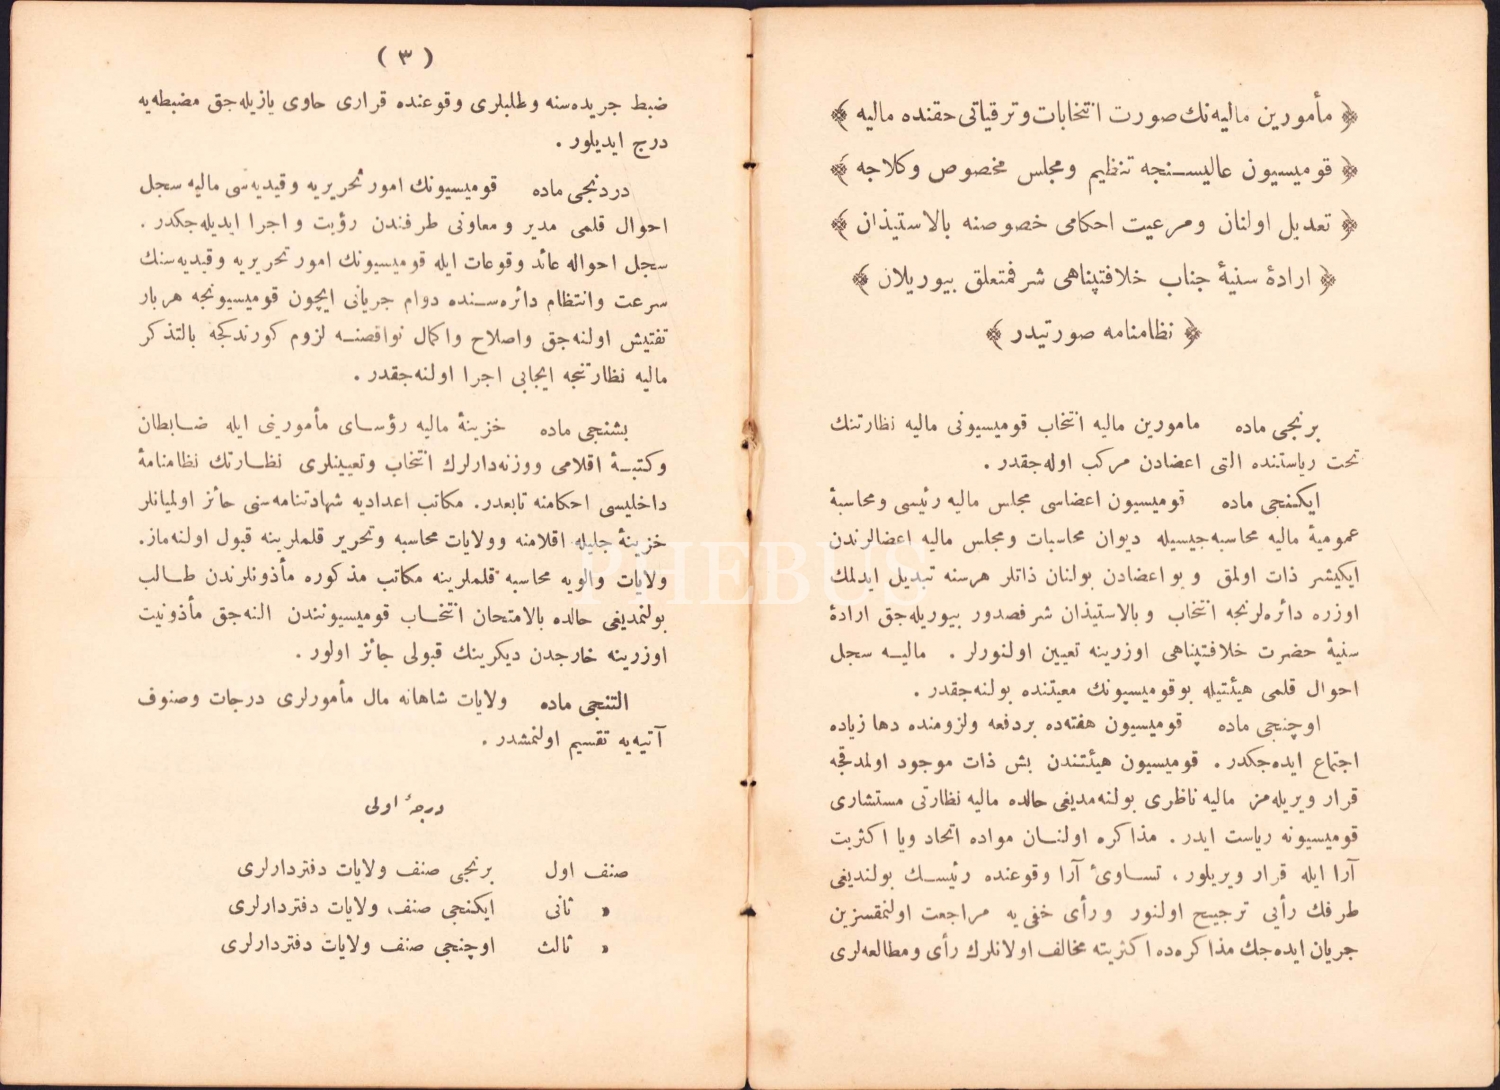 ﴿ مأمورین مالیه‌نك صورت انتخابات وترقیاتی حقنده مالیه ﴾
﴿ قومیسیون عالیسـنجه تنظیم ومجلس مخصوص وكلاجه ﴾
﴿ تعدیل اولنان ومرعیت احكامی خصوصنه بالاستیذان ﴾
﴿ ارادهٔ سنیهٔ جناب خلافتپناهی شرفمتعلق بیوریلان ﴾
﴿ نظامنامه صورتیدر ﴾
برنجی ماده مامورین مالیه انتخاب قومیسیونی مالیه نظارتنك
تحت ریاستنده التی اعضادن مركب اوله‌جقدر .
ایكنجی ماده قومیسیون اعضاسی مجلس مالیه رئیسی ومحاسبهٔ
عمومیهٔ مالیه محاسبه‌جیسیله دیوان محاسبات ومجلس مالیه اعضالرندن
ایكیشر ذات اولمق و بو اعضادن بولنان ذاتلر هرسنه تبدیل ایدلمك
اوزره دائره‌لرنجه انتخاب وبالاستیذان شرفصدور بیوریله‌جق ارادهٔ
سنیهٔ حضرت خلافتپناهی اوزرینه تعیین اولنورلر . مالیـه سجل
احوال قلمی هیئتیله بوقومیسیونك معیتنده بولنه‌جقدر .
اوچنجی ماده قومیسیون هفته‌ده بردفعه ولزومنده دها زیاده
اجتماع ایده‌جكدر . قومیسیون هیئتندن بش ذات موجود اولمدقجه
قرار ویریله‌مز مالیه ناظری بولنه‌مدیغی حالده مالیه نظارتی مستشاری
قومیسیونه ریاست ایدر . مذاكره اولنـان مواده اتحاد ویا اكثریت
آرا ایله قرار ویریلور ، تسـاویٔ آرا وقوعنده رئیسـك بولندیغی
طرفك رأیی ترجیح اولنور ورأی خفی‌یه مراجعت اولنمقسزین
جریان ایده‌جك مذاكره‌ده اكثریته مخالف اولانلرك رأی ومطالعه‌لری
( ٣ )
ضبط جریده‌سنه وطلبلری وقوعنده قراری حاوی یازیله‌جق مضبطه‌یه
درج ایدیلور .
دردنجی ماده قومیسیونك امور تحریریه وقیدیه‌سی مالیه سجل
احوال قلمی مدیر ومعاونی طرفندن رؤیت و اجرا ایدیله‌جكدر .
سجل احواله عائد وقوعات ایله قومیسیونك امور تحریریه وقیدیه‌سنك
سرعت وانتظام دائره‌سـنده دوام جریانی ایچون قومیسیونجه هربار
تفتیش اولنه‌جق واصلاح واكمال نواقصنـه لزوم كورندكجه بالتذكر
مالیه نظارتنجه ایجابی اجرا اولنه‌جقدر .
بشنجی ماده خزینهٔ مالیه رؤسـای مأمورینی ایله ضـابطان
وكتبـهٔ اقلامی ووزنه‌دارلرك انتخاب وتعیینلری نظـارتك نظامنامهٔ
داخلیسی احكامنه تابعدر. مكاتب اعدادیه شهادتنامه‌سنی حائز اولمیانلر
خزینهٔ جلیله اقلامنه وولایات محاسبه وتحریر قلملرینه قبول اولنه‌ماز.
ولایات والویه محاسبه قلملرینه مكاتب مذكوره مأذونلرندن طـالب
بولنمدیغی حالده بالامتحان انتخـاب قومیسیونندن النه‌جق مأذونیت
اوزرینه خارجدن دیكرینك قبولی جائز اولور .
التنجی ماده ولایات شاهانه مال مأمورلری درجات وصنوف
آتیه‌یه تقسیم اولنمشدر .
درجهٔ اولی
صنف اول برنجی صنف ولایات دفتردارلری
» ثانی ایكنجی صنف ولایات دفتردارلری
» ثالث اوچنجی صنف ولایات دفتردارلری
PHEBUS